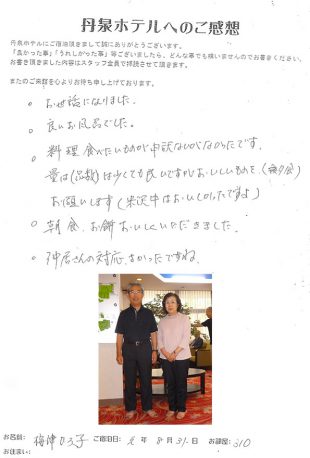 丹泉ホテルへのご感想
丹泉ホテルにご宿泊頂きまして誠にありがとうございます。
「良かった事」「うれしかった事」等ございましたら、どんな事でも構いませんのでお書きください。
お書き頂きました内容はスタッフ全員で拝読させて頂きます。
またのご来館を心よりお待ち申し上げております。
。お世話になりました。
。良いお風呂でした。
。料理 食べたいものが申訳ないがなかったです。
量は(品数)は少くても良いですがおいしいものを(夜夕食)
お願いします(米沢牛はおいしかったですよ)
。朝食、お餅おいしくいただきました。
。仲居さんの対応、よかったですね。
お名前: 梅津 子 ご宿泊日: 元 年 8 月 31 日 お部屋: 310
お住まい: